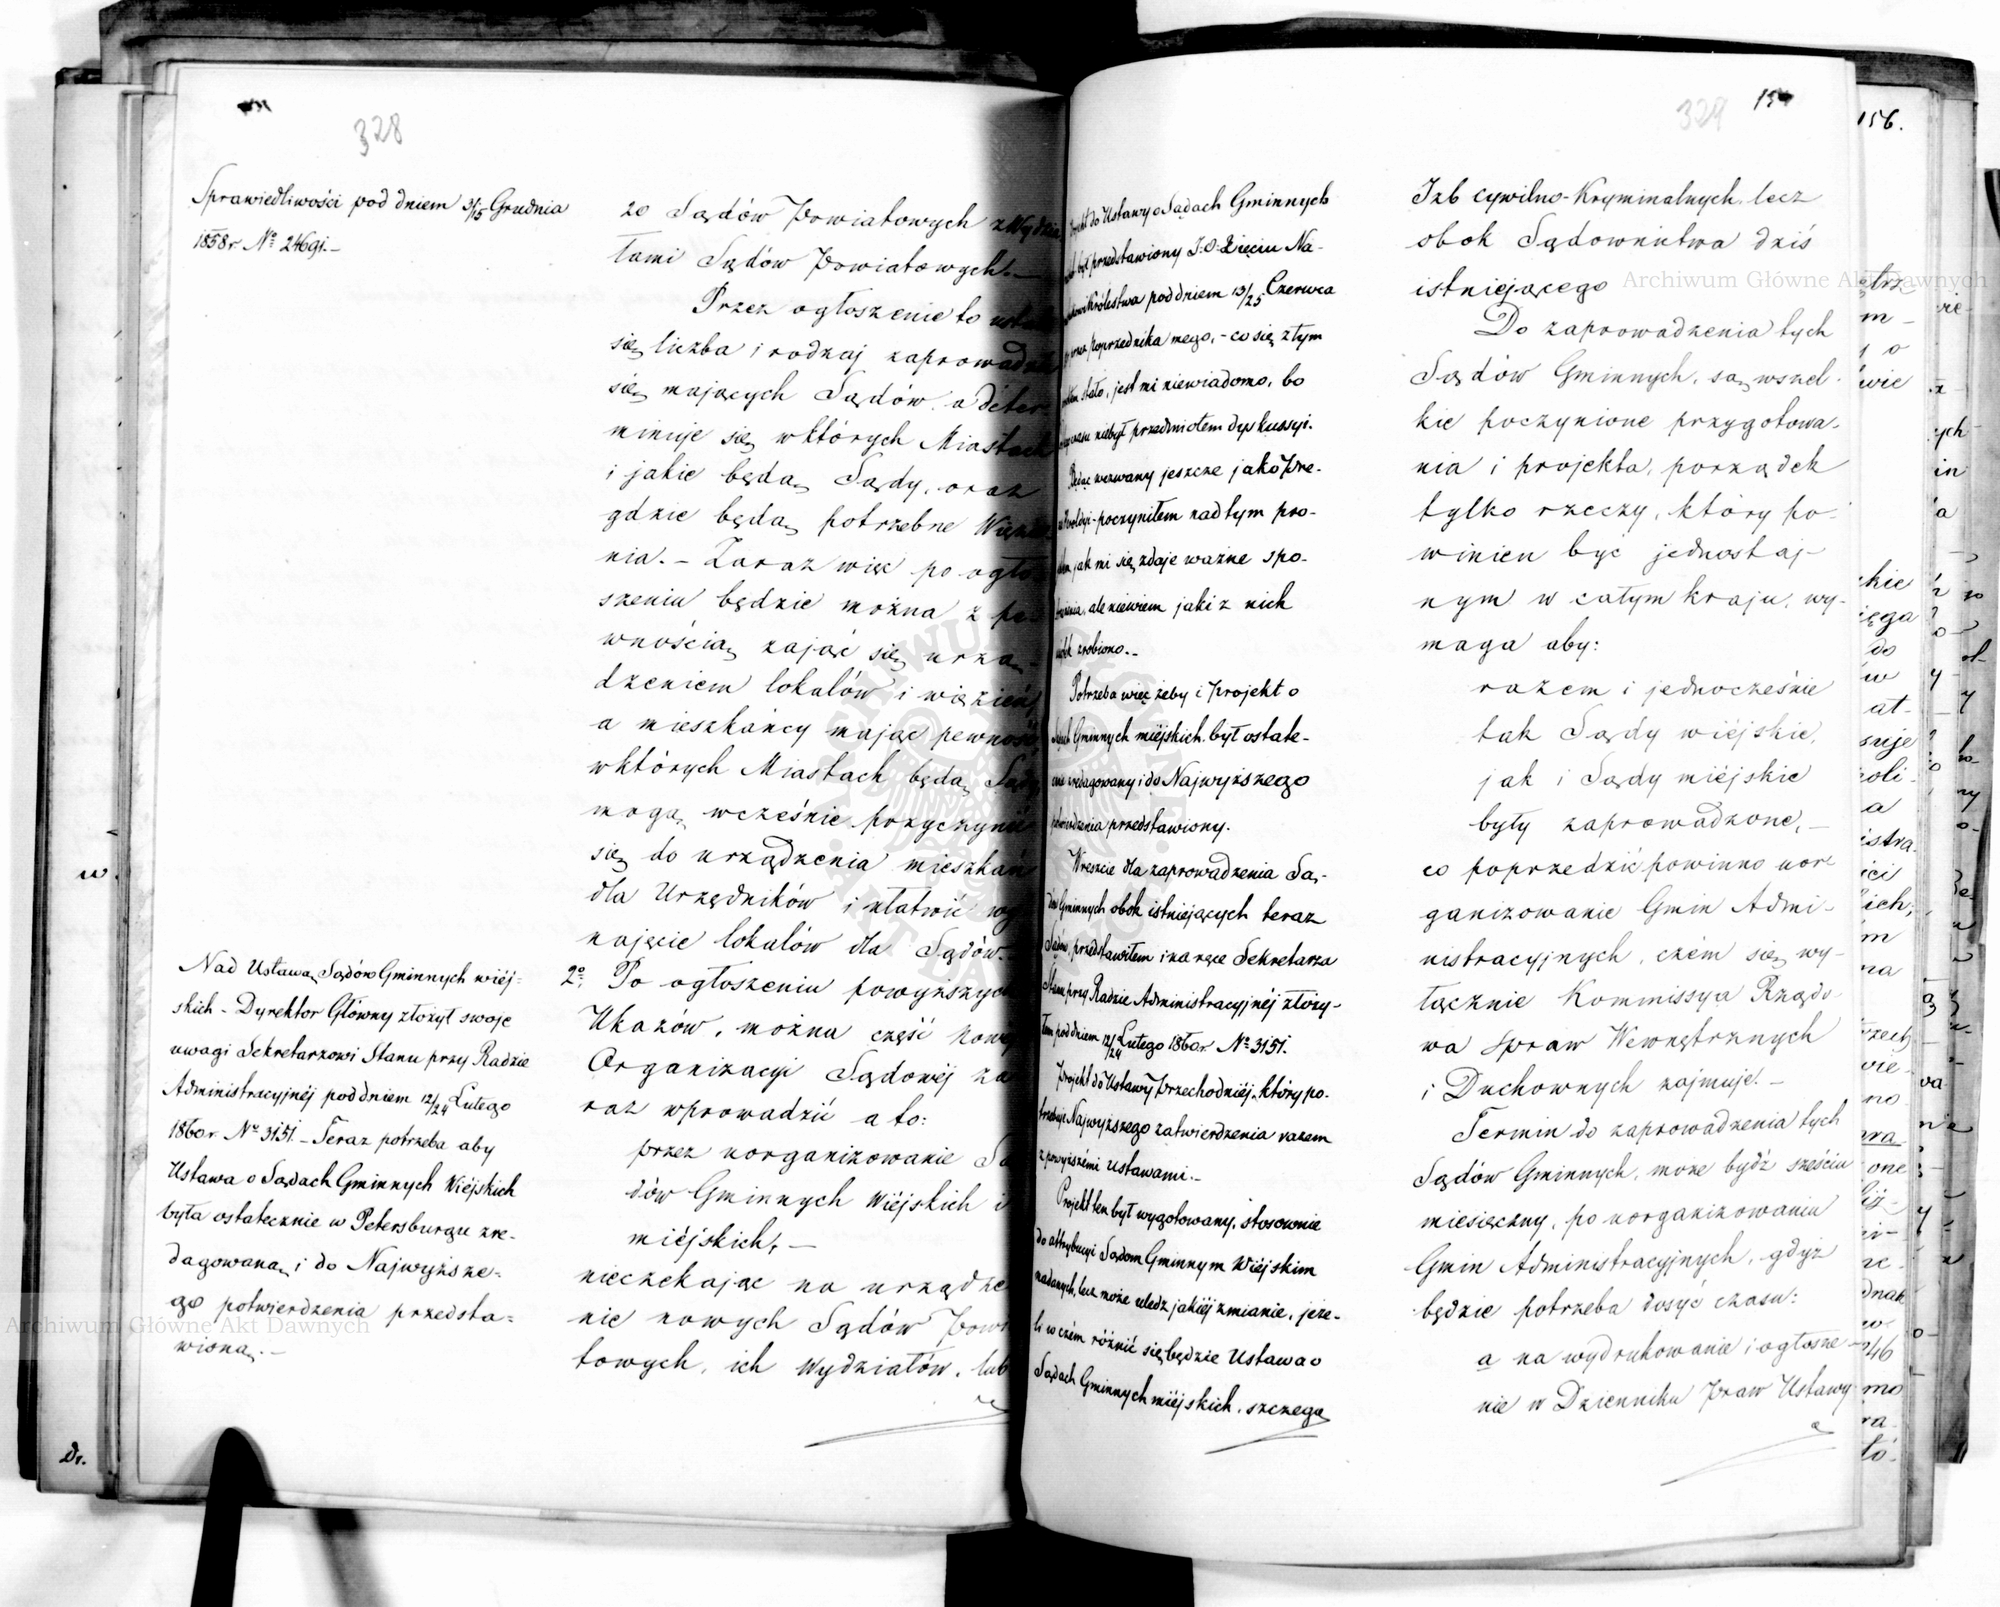 328
Sprawiedliwości pod dniem 3/15 Grudnia
1858 r. No 24691.—
Nad Ustawą Sądów Gminnych wiéj-
skich - Dyrektor Główny złożył swoje
uwagi Sekretarzowi Stanu przy Radzie
Administracyjnéj pod dniem 12/24 Lutego
1860 r. No 3151. — Teraz potrzeba aby
Ustawa o Sądach Gminnych Wiéjskich
była ostatecznie w Petersburgu zre-
dagowaną i do Najwyższe-
go potwierdzenia przedsta-
wioną.—
20 Sądów Powiatowych z Wydzia
łami Sądów Powiatowych.—
Przez ogłoszenie to
się liczba i rodzaj zaprowadzić
się mających Sądów, a déter
minuje się w których Miastach
i jakie będą Sądy, oraz
gdzie będą potrzebne Więzie
nia. — Zaraz więc po ogło
szeniu będzie można z pe
wnością zająć się urzą-
dzeniem lokalów i więzień,
a mieszkańcy mając pewność
w których Miastach będą Sądy
mogą wcześnie przyczynić
się do urządzenia mieszkań
dla Urzędników i ułatwić wy
najęcie lokalów dla Sądów.
2o Po ogłoszeniu powyższych
Ukazów, można część nowej
Organizacyi Sądowéj za
raz wprowadzić a to:
przez uorganizowanie Są
dów Gminnych Wiéjskich i
miéjskich, —
nieczekając na urządze
nie nowych Sądów Powi
towych, ich Wydziałów, lub
329
do Ustawy o Sądach Gminnych
był przedstawiony J. O. Xięciu Na-
Królestwa pod dniem 13/25 Czerwca
przez poprzednika mego, - co się z tym
stało, jest mi niewiadomo, bo
niebył przedmiotem dyskussyi.
Będąc wezwany jeszcze jako Pre-
- poczyniłem nad tym pro-
jak mi się zdaje ważne spo-
ale niewiem jaki z nich
zrobiono.—
Potrzeba więc żeby i Projekt o
Gminnych miéjskich był ostate-
zredagowany i do Najwyższego
potwierdzenia przedstawiony.
Wreszcie dla zaprowadzenia Są-
dów Gminnych obok istniejących teraz
Sądów, przedstawiłem i na ręce Sekretarza
Stanu przy Radzie Administracyjnéj złoży-
łem pod dniem 12/24 Lutego 1860 r. No 3151.
Projekt do Ustawy Przechodniéj, który po-
trzebuje Najwyższego zatwierdzenia razem
z powyższémi ustawami.—
Projekt ten był wygotowany, stosownie
do attrybucyi Sądom Gminnym Wiéjskim
nadanych, lecz może uledz jakiéj zmianie, jeże-
li w czém różnić się będzie Ustawa o
Sądach Gminnych miéjskich, szczegó
Izb cywilno-Kryminalnych, lecz
obok Sądownictwa dziś
istniejącego
Do zaprowadzenia tych
Sądów Gminnych, są wszel-
kie poczynione przygotowa-
nia i projekta, porządek
tylko rzeczy, który po-
winien być jednostaj-
nym w całym kraju, wy-
maga aby:
razem i jednocześnie
tak Sądy wiéjskie,
jak i Sądy miéjskie
były zaprowadzone, —
co poprzedzić powinno uor
ganizowanie Gmin Admi-
nistracyjnych, czém się wy-
łącznie Kommissya Rządo-
wa Spraw Wewnętrznych
i Duchownych zajmuje. —
Termin do zaprowadzenia tych
Sądów Gminnych, może bydź sześcio
miesięczny, po uorganizowaniu
Gmin Administracyjnych, gdyż
będzie potrzeba dosyć czasu:
a na wydrukowanie i ogłosze-
nie w Dzienniku Praw Ustawy
156.
Archiwum Główne Akt Dawnych
Archiwum Główne Akt Dawnych